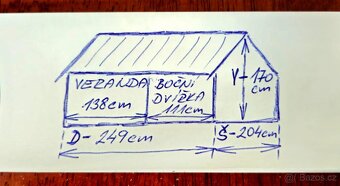 VERANDA BOČNÍ
DVÍŘKA
138cm 111cm
V-170
cm
D-249cm Š-204cm
Bazos.cz